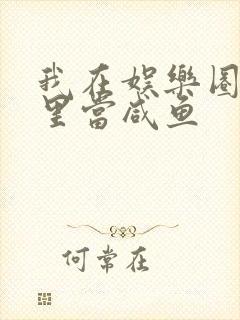 我在娱樂圈
里當咸鱼
何常在